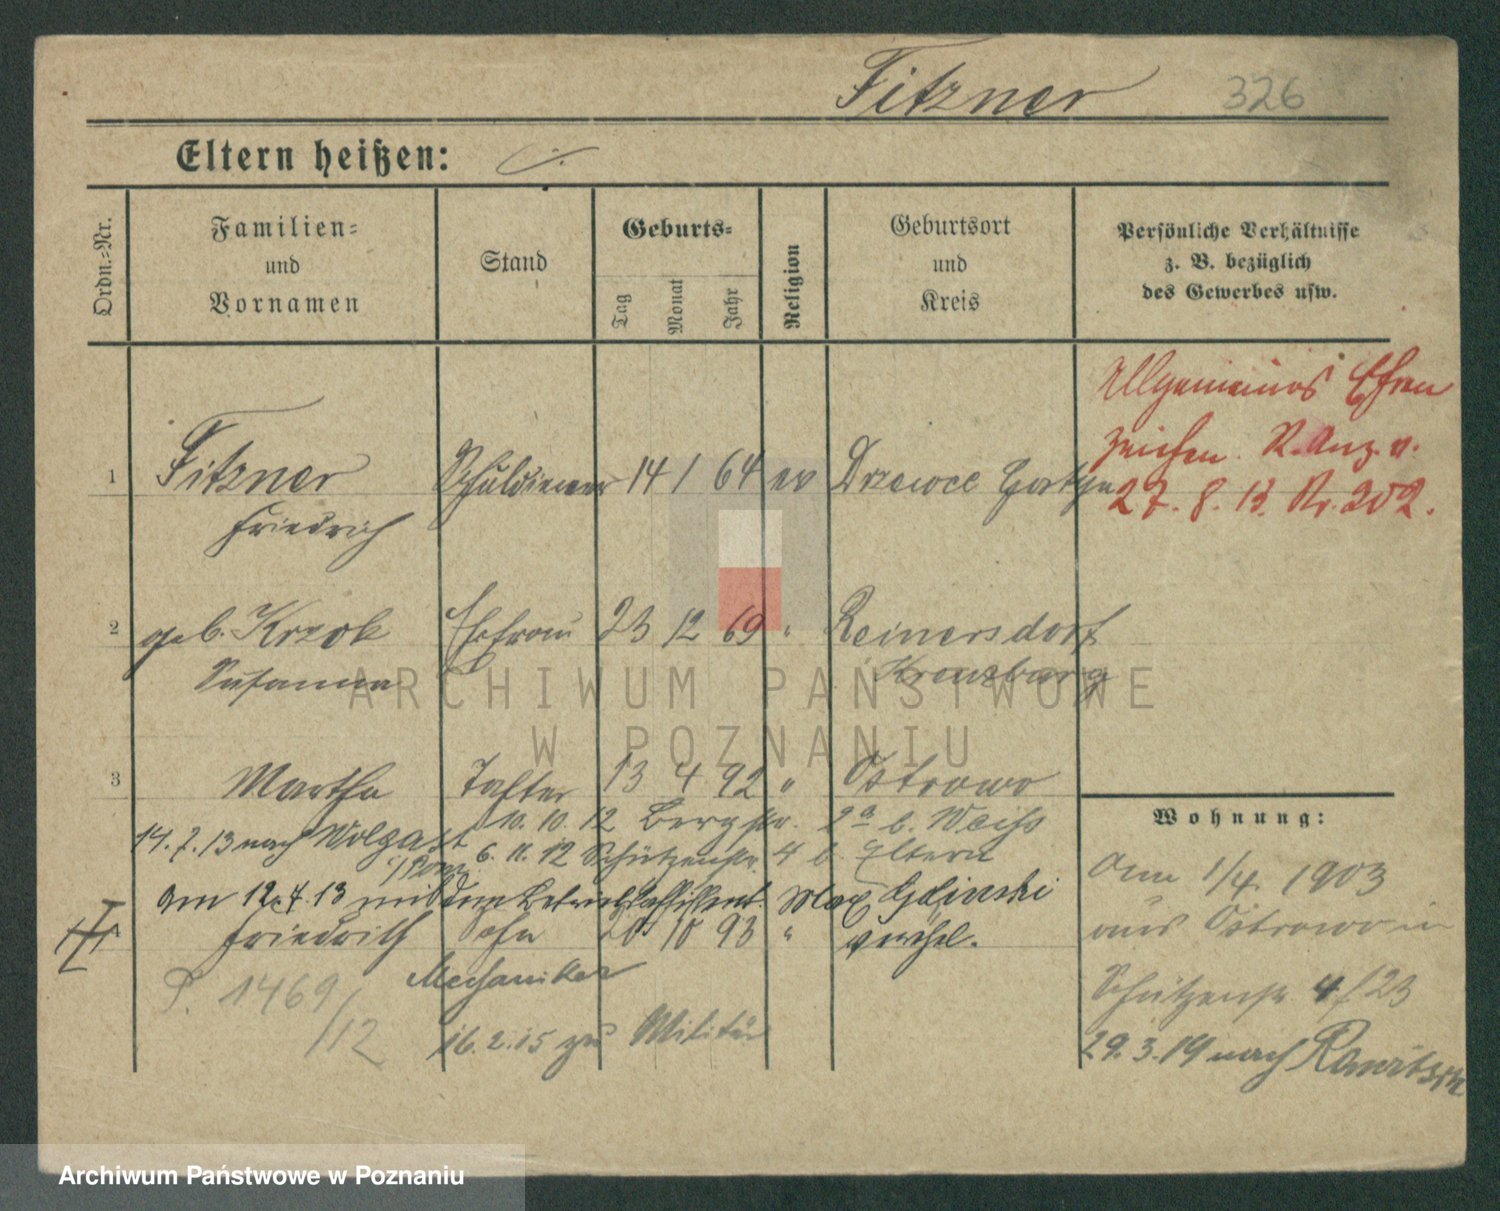 Fitzner 326
Eltern heißen: ./.
Ordn.-Nr.
Familien-
und
Vornamen
Stand
Geburts-
Tag
Monat
Jahr
Religion
Geburtsort
und
Kreis
Persönliche Verhältnisse
z. B. bezüglich
des Gewerbes usw.
Allgemeines Ehren
zeichen R. Anz. v.
27. 8. 13. Nr. 202.
1 Fitzner Schuldiener 14 1 64 ev Drzewce Gostyn
Friedrich
2 geb. Krzok Ehefrau 23 12 69 " Reinersdorf
Susanna Kreuzburg
3 Martha Tochter 13 4 92 " Ostrowo
10. 10. 12 Bergstr. 2a b. Weiss
14. 7. 13 nach Wolgast
i/Pom. 6. 11. 12 Schützenstr. 4 b. Eltern
am 12. 4. 13 mit dem Max Glinski
verehel.
Friedrich Sohn 20 10 93 "
Mechaniker
P. 1469/12
16. 2. 15 zu Militär
Wohnung:
am 1/4. 1903
aus Ostrowo in
Schützenstr 4 / 23
29. 3. 19 nach Rawitsch
ARCHIWUM PAŃSTWOWE
W POZNANIU
Archiwum Państwowe w Poznaniu